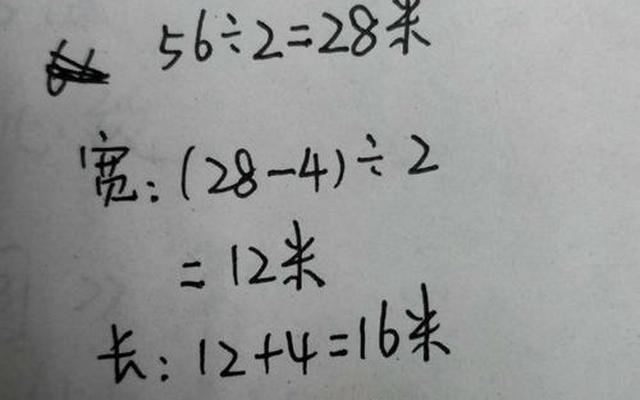 56÷2=28米
宽:(28-4)÷2
=12米
长:12+4=16米